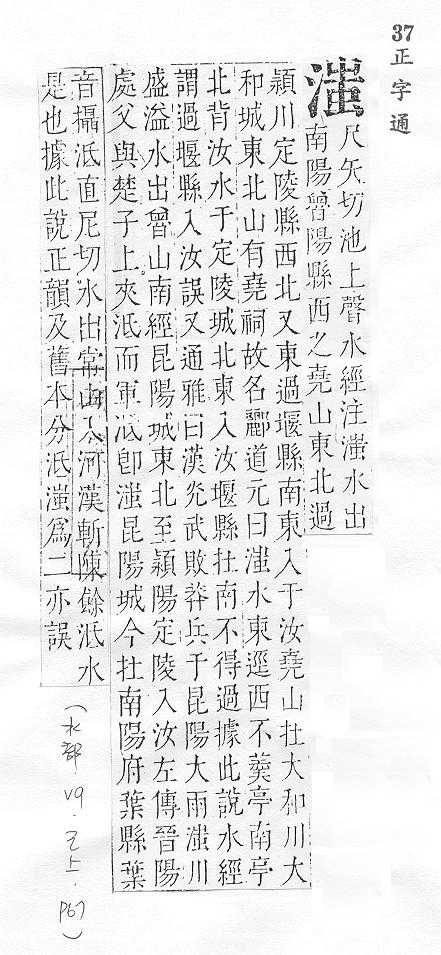 37正字通
滍
尺矢切池上聲水經注滍水出
南陽魯陽縣西之堯山東北過
潁川定陵縣西北又東過堰縣南東入于汝堯山扗大和川大
和城東北山有堯祠故名酈道元曰滍水東逕西不羹亭南亭
北背汝水于定陵城北東入汝堰縣扗南不得過據此說水經
謂過堰縣入汝誤又通雅曰漢光武敗莽兵于昆陽大雨滍川
盛溢水出魯山南經昆陽城東北至潁陽定陵入汝左傳晉陽
處父與楚子上夾泜而軍泜卽滍昆陽城今扗南陽府葉縣葉
音攝泜直尼切水出常山入河漢斬陳餘泜水
是也據此說正韻及舊本分泜滍爲二亦誤
(水部 v9.巳上.p67)